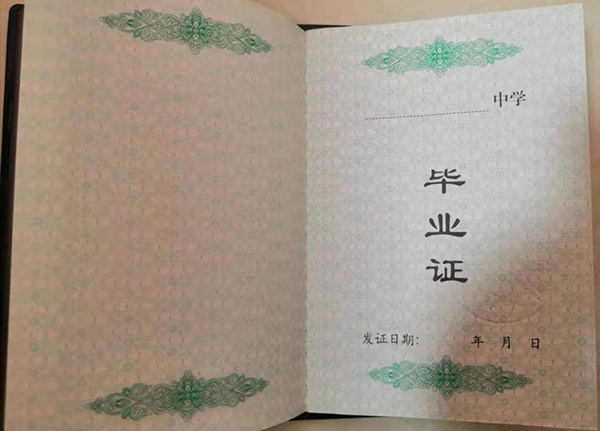 中学
毕
业
证
发证日期： 年 月 日